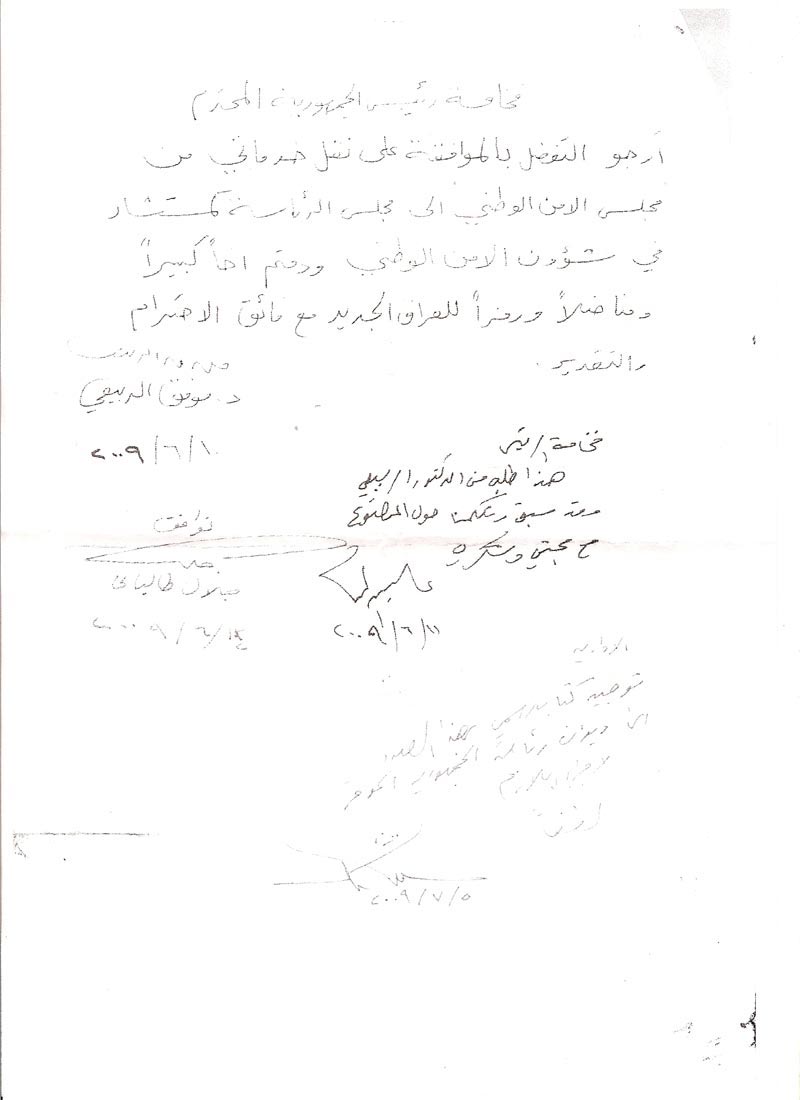 فخامة رئيس الجمهورية المحترم
أرجو التفضل بالموافقة على نقل خدماتي من
مجلس الامن الوطني الى مجلس الرئاسة كمستشار
في شؤون الامن الوطني ودمتم اخاً كبيراً
ومناضلاً ورمزاً للعراق الجديد مع فائق الاحترام
والتقدير.
د. موفق الربيعي
٢٠٠٩/٦/١٠
فخامة الرئيس
هذا طلب من الدكتور الربيعي
وقد سبق وتكلمنا حول الموضوع
مع محبتي وشكري
٢٠٠٩/٦/١١
نوافق
جلال طالباني
٢٠٠٩/٦/١٤
الادارية
توجيه كتاب رسمي بهذا الصدد
الى ديوان رئاسة الجمهورية الموقر
لاجراء اللازم
٢٠٠٩/٧/٥